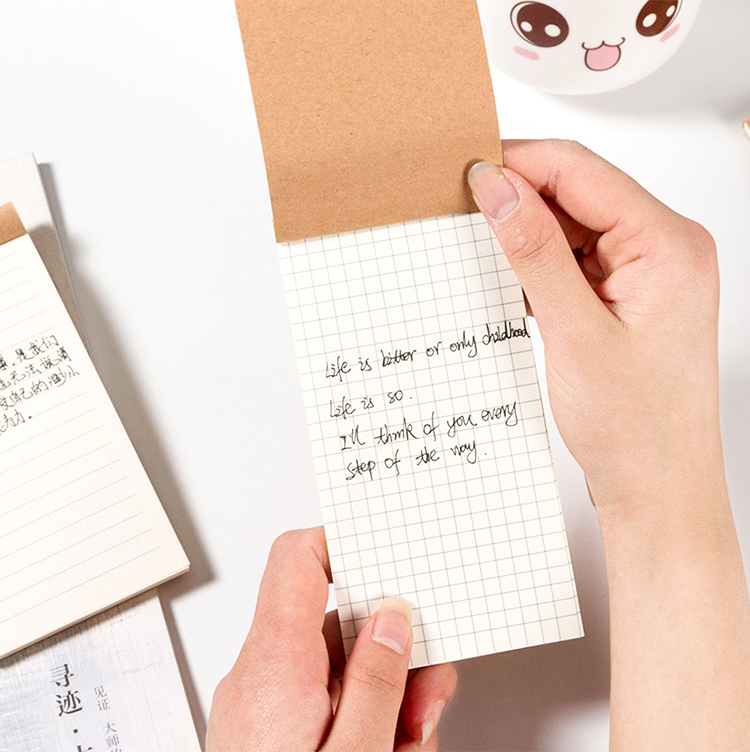 Life is bitter or only childhood
Life is so.
I'll think of you every
step of the way.
是我们
无法说清
自己的
力.
寻迹·大
见证 大师的